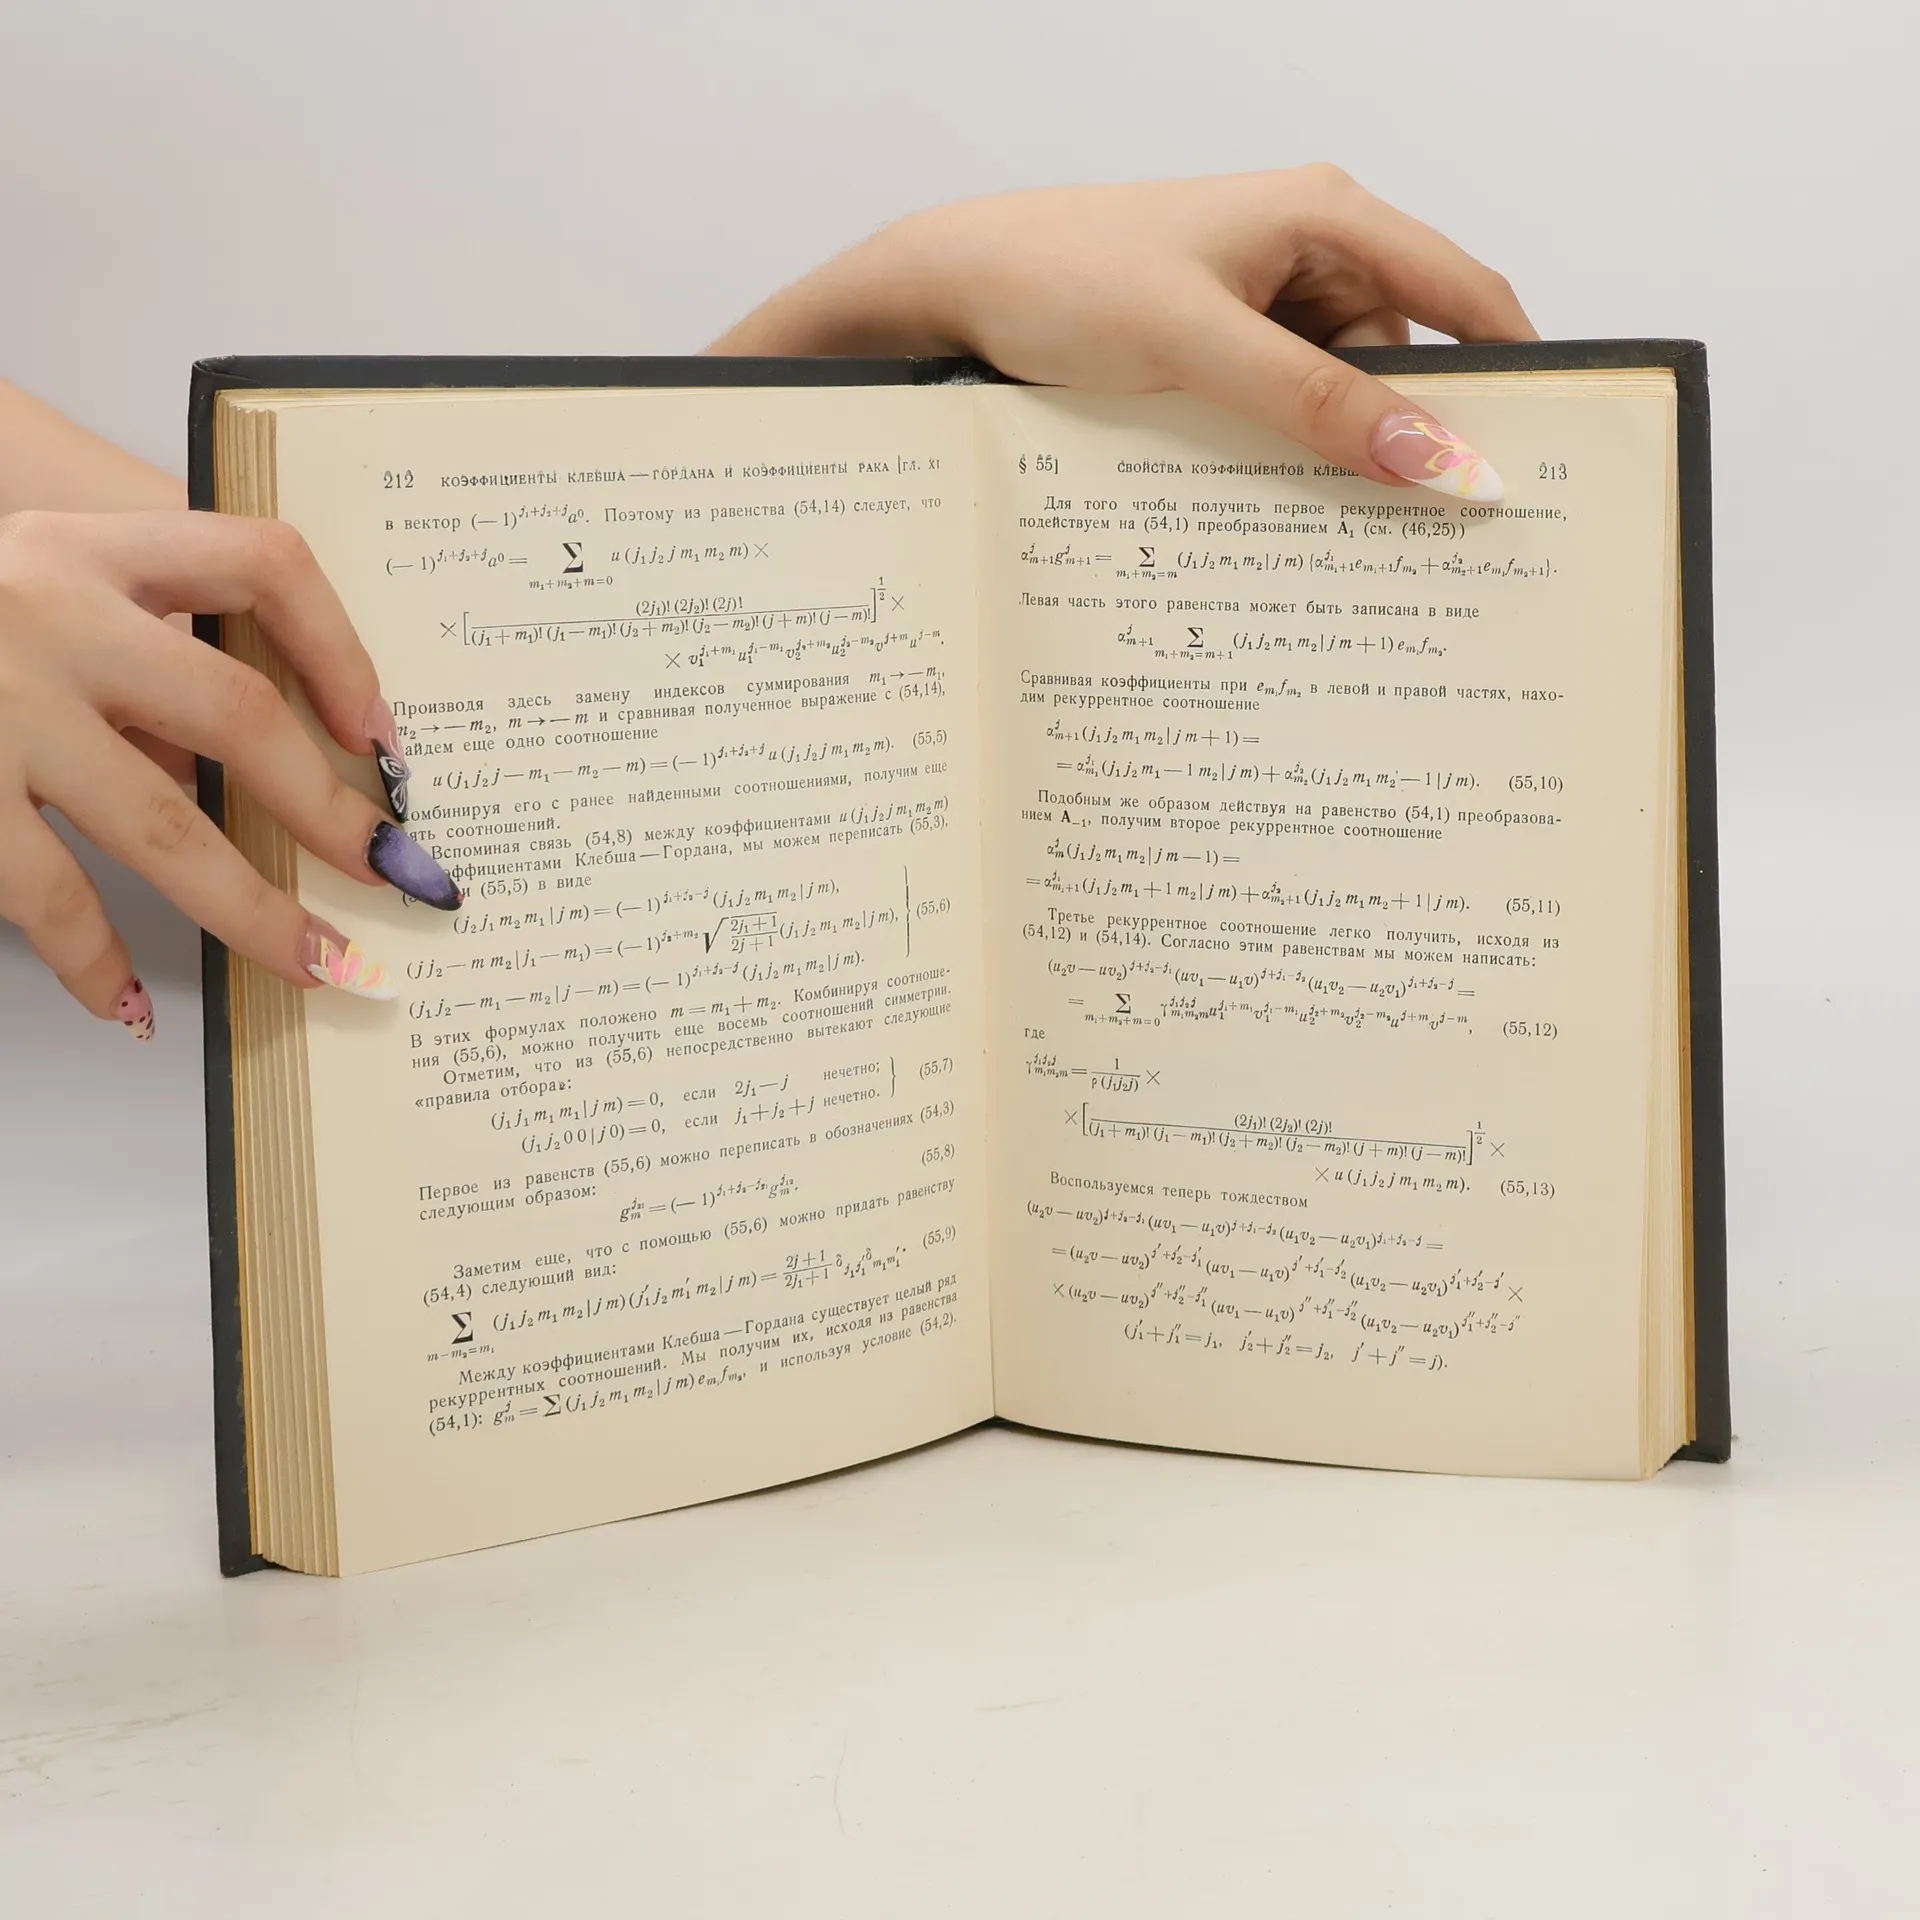 212 КОЭФФИЦИЕНТЫ КЛЕБША — ГОРДАНА И КОЭФФИЦИЕНТЫ РАКА [ГЛ. XI
в вектор (— 1)^{j₁+j₂+j}a⁰. Поэтому из равенства (54,14) следует, что
(— 1)^{j₁+j₂+j}a⁰ = ∑_{m₁+m₂+m=0} u (j₁ j₂ j m₁ m₂ m) ×
× [(2j₁)! (2j₂)! (2j)! / (j₁ + m₁)! (j₁ — m₁)! (j₂ + m₂)! (j₂ — m₂)! (j + m)! (j — m)!]^{1/2} ×
× v₁^{j₁+m₁} u₁^{j₁—m₁} v₂^{j₂+m₂} u₂^{j₂—m₂} v^{j+m} u^{j—m}.
Производя здесь замену индексов суммирования m₁ → — m₁,
m₂ → — m₂, m → — m и сравнивая полученное выражение с (54,14),
айдем еще одно соотношение
u (j₁ j₂ j — m₁ — m₂ — m) = (— 1)^{j₁+j₂+j} u (j₁ j₂ j m₁ m₂ m). (55,5)
омбинируя его с ранее найденными соотношениями, получим еще
ять соотношений.
Вспоминая связь (54,8) между коэффициентами u (j₁ j₂ j m₁ m₂ m)
эффициентами Клебша — Гордана, мы можем переписать (55,3),
и (55,5) в виде
(j₂ j₁ m₂ m₁ | j m) = (— 1)^{j₁+j₂—j} (j₁ j₂ m₁ m₂ | j m),
(j j₂ — m m₂ | j₁ — m₁) = (— 1)^{j₂+m₂} √((2j₁ + 1)/(2j + 1)) (j₁ j₂ m₁ m₂ | j m), (55,6)
(j₁ j₂ — m₁ — m₂ | j — m) = (— 1)^{j₁+j₂—j} (j₁ j₂ m₁ m₂ | j m).
В этих формулах положено m = m₁ + m₂. Комбинируя соотноше-
ния (55,6), можно получить еще восемь соотношений симметрии.
Отметим, что из (55,6) непосредственно вытекают следующие
«правила отбора»:
(j₁ j₁ m₁ m₁ | j m) = 0, если 2j₁ — j нечетно;
(j₁ j₂ 0 0 | j 0) = 0, если j₁ + j₂ + j нечетно. (55,7)
Первое из равенств (55,6) можно переписать в обозначениях (54,3)
следующим образом:
g_m^{j₂₁} = (— 1)^{j₁+j₂—j₂₁} g_m^{j₁₂}. (55,8)
Заметим еще, что с помощью (55,6) можно придать равенству
(54,4) следующий вид:
∑_{m—m₂=m₁} (j₁ j₂ m₁ m₂ | j m) (j′₁ j₂ m′₁ m₂ | j m) = (2j + 1)/(2j₁ + 1) δ_{j₁j′₁} δ_{m₁m′₁}. (55,9)
Между коэффициентами Клебша — Гордана существует целый ряд
рекуррентных соотношений. Мы получим их, исходя из равенства
(54,1): g_m^j = ∑ (j₁ j₂ m₁ m₂ | j m) e_{m₁} f_{m₂}, и используя условие (54,2).
§ 55] СВОЙСТВА КОЭФФИЦИЕНТОВ 213
Для того чтобы получить первое рекуррентное соотношение,
подействуем на (54,1) преобразованием A₁ (см. (46,25))
α_{m+1}^j g_{m+1}^j = ∑_{m₁+m₂=m} (j₁ j₂ m₁ m₂ | j m) {α_{m₁+1}^{j₁} e_{m₁+1} f_{m₂} + α_{m₂+1}^{j₂} e_{m₁} f_{m₂+1}}.
Левая часть этого равенства может быть записана в виде
α_{m+1}^j ∑_{m₁+m₂=m+1} (j₁ j₂ m₁ m₂ | j m + 1) e_{m₁} f_{m₂}.
Сравнивая коэффициенты при e_{m₁} f_{m₂} в левой и правой частях, нахо-
дим рекуррентное соотношение
α_{m+1}^j (j₁ j₂ m₁ m₂ | j m + 1) =
= α_{m₁}^{j₁} (j₁ j₂ m₁ — 1 m₂ | j m) + α_{m₂}^{j₂} (j₁ j₂ m₁ m₂ — 1 | j m). (55,10)
Подобным же образом действуя на равенство (54,1) преобразова-
нием A₋₁, получим второе рекуррентное соотношение
α_m^j (j₁ j₂ m₁ m₂ | j m — 1) =
= α_{m₁+1}^{j₁} (j₁ j₂ m₁ + 1 m₂ | j m) + α_{m₂+1}^{j₂} (j₁ j₂ m₁ m₂ + 1 | j m). (55,11)
Третье рекуррентное соотношение легко получить, исходя из
(54,12) и (54,14). Согласно этим равенствам мы можем написать:
(u₂v — uv₂)^{j+j₂—j₁} (uv₁ — u₁v)^{j+j₁—j₂} (u₁v₂ — u₂v₁)^{j₁+j₂—j} =
= ∑_{m₁+m₂+m=0} γ_{m₁m₂m}^{j₁j₂j} u₁^{j₁+m₁} v₁^{j₁—m₁} u₂^{j₂+m₂} v₂^{j₂—m₂} u^{j+m} v^{j—m}, (55,12)
где
γ_{m₁m₂m}^{j₁j₂j} = 1/(ρ (j₁j₂j)) ×
× [(2j₁)! (2j₂)! (2j)! / (j₁ + m₁)! (j₁ — m₁)! (j₂ + m₂)! (j₂ — m₂)! (j + m)! (j — m)!]^{1/2} ×
× u (j₁ j₂ j m₁ m₂ m). (55,13)
Воспользуемся теперь тождеством
(u₂v — uv₂)^{j+j₂—j₁} (uv₁ — u₁v)^{j+j₁—j₂} (u₁v₂ — u₂v₁)^{j₁+j₂—j} =
= (u₂v — uv₂)^{j′+j′₂—j′₁} (uv₁ — u₁v)^{j′+j′₁—j′₂} (u₁v₂ — u₂v₁)^{j′₁+j′₂—j′} ×
× (u₂v — uv₂)^{j″+j″₂—j″₁} (uv₁ — u₁v)^{j″+j″₁—j″₂} (u₁v₂ — u₂v₁)^{j″₁+j″₂—j″}
(j′₁ + j″₁ = j₁, j′₂ + j″₂ = j₂, j′ + j″ = j).